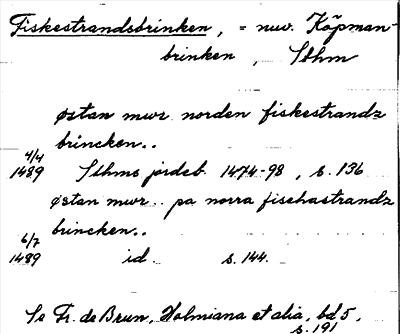 Fiskestrandsbrinken, = nuv. Köpman-
brinken, Sthm
østan mwr norden fiskestrandz
brincken..
4/4
1489 Sthms jordeb. 1474-98, s. 136
østan mwr.. pa norra fischastrandz
brincken..
6/7
1489 id. s. 144.
Se Fr. de Brun, Holmiana et alia, bd 5,
s. 191